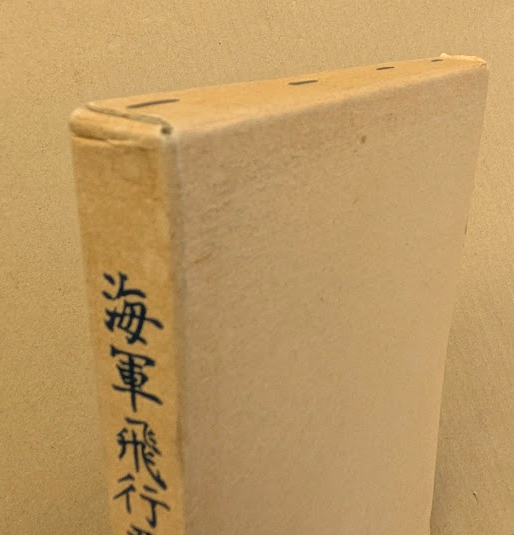 海軍飛行